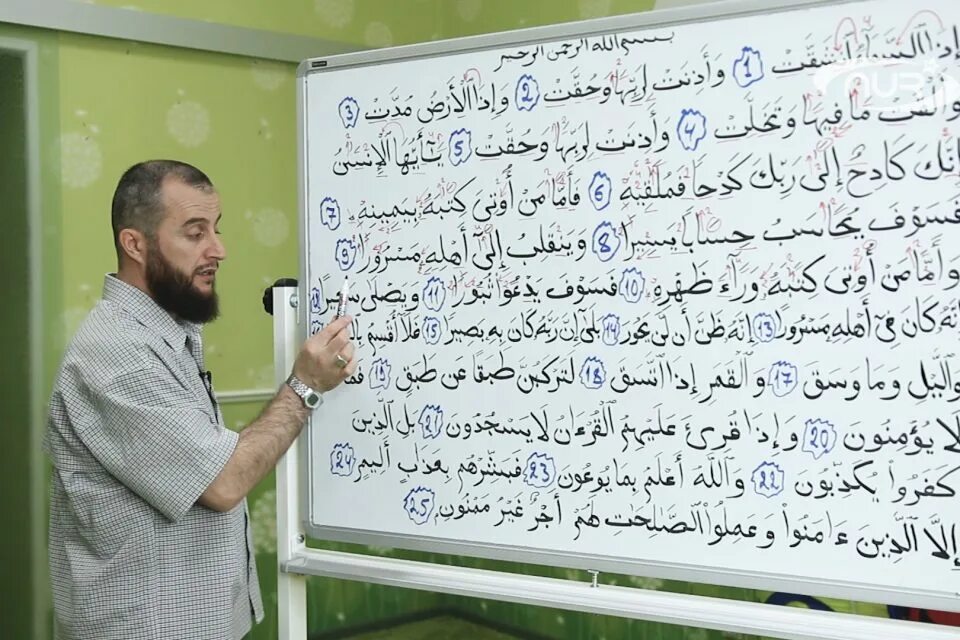 بسم الله الرحمن الرحيم
إِذَا ٱلسَّمَآءُ ٱنشَقَّتْ 1 وَأَذِنَتْ لِرَبِّهَا وَحُقَّتْ 2 وَإِذَا ٱلْأَرْضُ مُدَّتْ 3
وَأَلْقَتْ مَا فِيهَا وَتَخَلَّتْ 4 وَأَذِنَتْ لِرَبِّهَا وَحُقَّتْ 5 يَٰٓأَيُّهَا ٱلْإِنسَٰنُ
إِنَّكَ كَادِحٌ إِلَىٰ رَبِّكَ كَدْحًا فَمُلَٰقِيهِ 6 فَأَمَّا مَنْ أُوتِىَ كِتَٰبَهُۥ بِيَمِينِهِۦ 7
فَسَوْفَ يُحَاسَبُ حِسَابًا يَسِيرًا 8 وَيَنقَلِبُ إِلَىٰٓ أَهْلِهِۦ مَسْرُورًا 9
وَأَمَّا مَنْ أُوتِىَ كِتَٰبَهُۥ وَرَآءَ ظَهْرِهِۦ 10 فَسَوْفَ يَدْعُوا۟ ثُبُورًا 11 وَيَصْلَىٰ
إِنَّهُۥ كَانَ فِىٓ أَهْلِهِۦ مَسْرُورًا 13 إِنَّهُۥ ظَنَّ أَن لَّن يَحُورَ 14 بَلَىٰٓ إِنَّ رَبَّهُۥ كَانَ بِهِۦ بَصِيرًا 15 فَلَآ أُقْسِمُ
وَٱلَّيْلِ وَمَا وَسَقَ 17 وَٱلْقَمَرِ إِذَا ٱتَّسَقَ 18 لَتَرْكَبُنَّ طَبَقًا عَن طَبَقٍ 19
لَا يُؤْمِنُونَ 20 وَإِذَا قُرِئَ عَلَيْهِمُ ٱلْقُرْءَانُ لَا يَسْجُدُونَ 21 بَلِ ٱلَّذِينَ
كَفَرُوا۟ يُكَذِّبُونَ 22 وَٱللَّهُ أَعْلَمُ بِمَا يُوعُونَ 23 فَبَشِّرْهُم بِعَذَابٍ أَلِيمٍ 24
إِلَّا ٱلَّذِينَ ءَامَنُوا۟ وَعَمِلُوا۟ ٱلصَّٰلِحَٰتِ لَهُمْ أَجْرٌ غَيْرُ مَمْنُونٍ 25